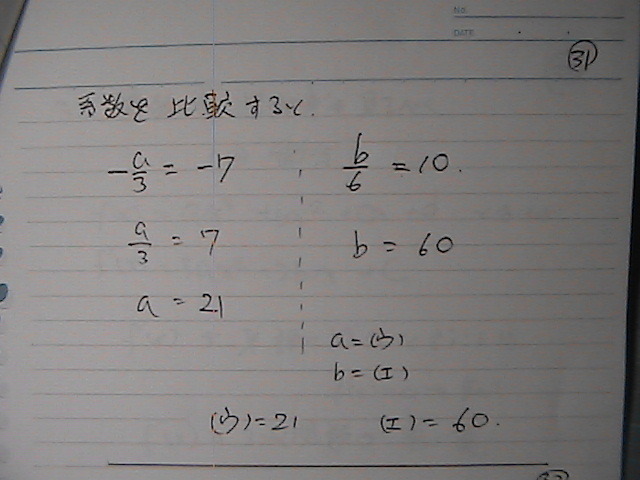 No.
DATE
㉛
係数を比較すると.
-a/3 = -7 b/6 = 10.
a/3 = 7 b = 60
a = 21
a = (ウ)
b = (エ)
(ウ) = 21 (エ) = 60.